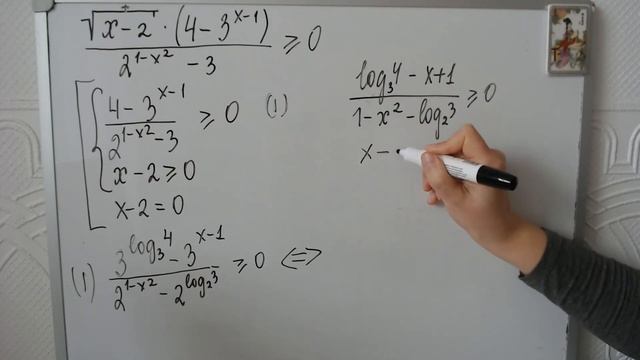 √(x-2) · (4-3^(x-1)) / (2^(1-x²) - 3) ≥ 0
(4-3^(x-1)) / (2^(1-x²) - 3) ≥ 0 (1)
x-2 ≥ 0
x-2 = 0
(1) (3^(log₃4) - 3^(x-1)) / (2^(1-x²) - 2^(log₂3)) ≥ 0 <=>
(log₃4 - x+1) / (1-x² - log₂3) ≥ 0
x -